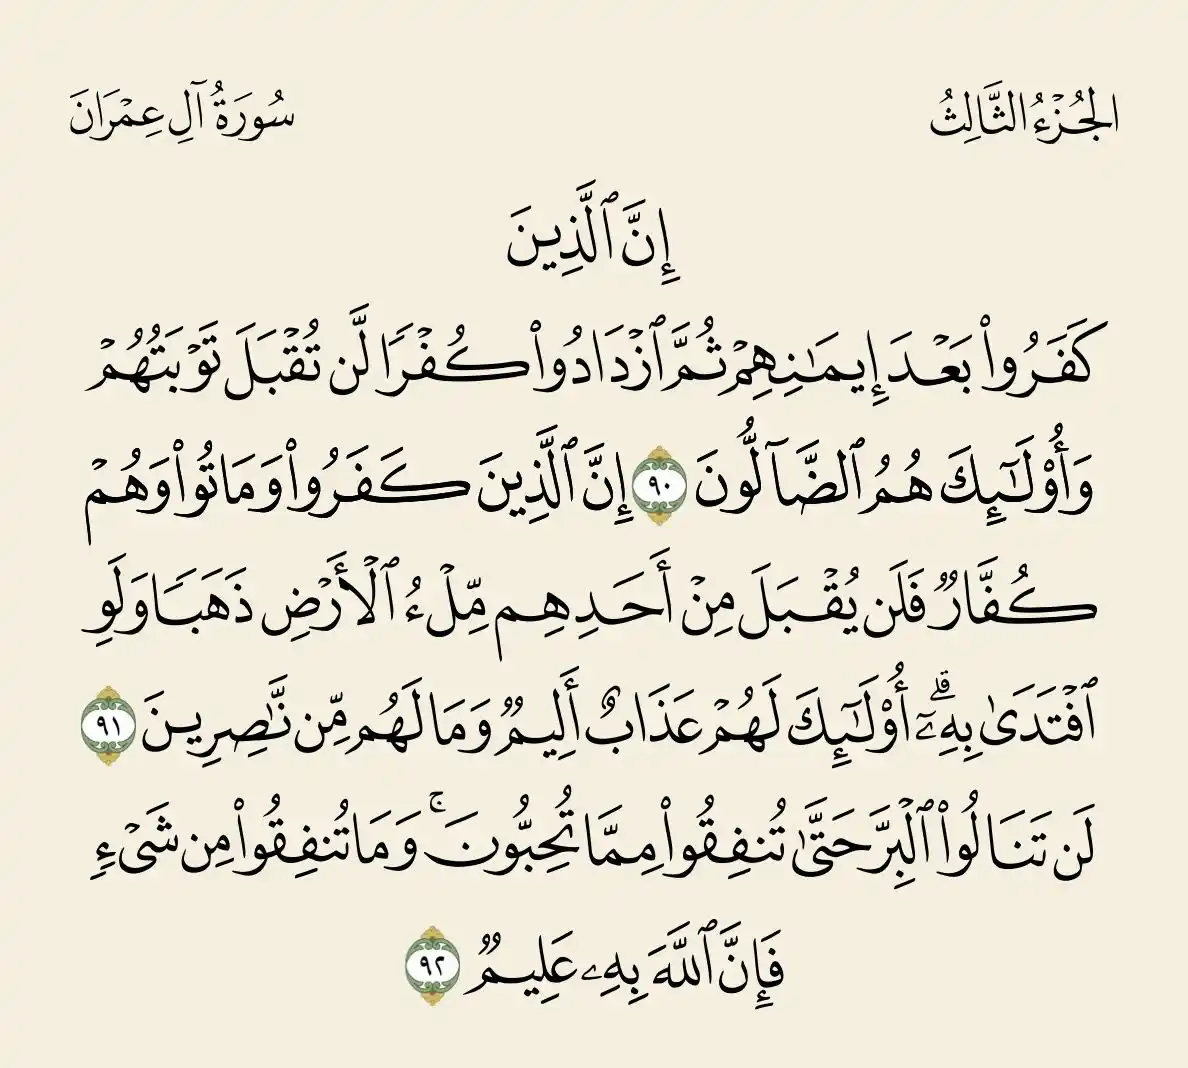 الجُزْءُ الثَّالِثُ
سُورَةُ آلِ عِمْرَانَ
إِنَّ ٱلَّذِينَ
كَفَرُوا۟ بَعْدَ إِيمَـٰنِهِمْ ثُمَّ ٱزْدَادُوا۟ كُفْرًا لَّن تُقْبَلَ تَوْبَتُهُمْ
وَأُو۟لَـٰٓئِكَ هُمُ ٱلضَّآلُّونَ ٩٠ إِنَّ ٱلَّذِينَ كَفَرُوا۟ وَمَاتُوا۟ وَهُمْ
كُفَّارٌ فَلَن يُقْبَلَ مِنْ أَحَدِهِم مِّلْءُ ٱلْأَرْضِ ذَهَبًا وَلَوِ
ٱفْتَدَىٰ بِهِۦٓ ۗ أُو۟لَـٰٓئِكَ لَهُمْ عَذَابٌ أَلِيمٌ وَمَا لَهُم مِّن نَّـٰصِرِينَ ٩١
لَن تَنَالُوا۟ ٱلْبِرَّ حَتَّىٰ تُنفِقُوا۟ مِمَّا تُحِبُّونَ ۚ وَمَا تُنفِقُوا۟ مِن شَىْءٍ
فَإِنَّ ٱللَّهَ بِهِۦ عَلِيمٌ ٩٢